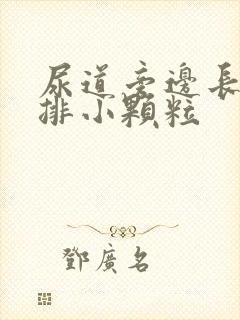 尿道旁邊長
排小顆粒
鄧廣名